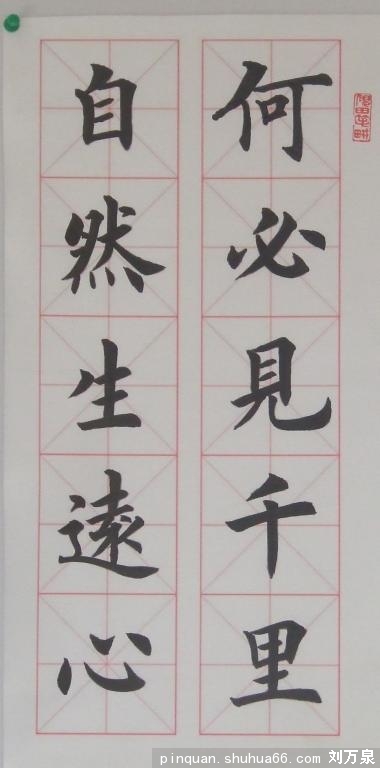 何必見千里
自然生遠心
pinquan.shuhua66.com 刘万泉